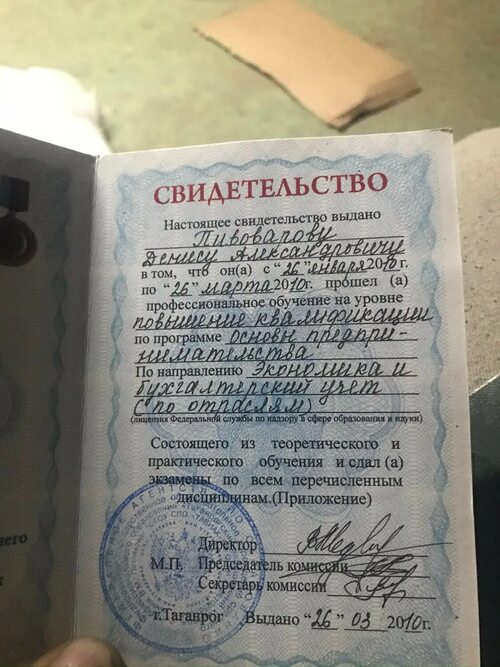 СВИДЕТЕЛЬСТВО
Настоящее свидетельство выдано
Пивоварову
Денису Александровичу
в том, что он(а) с "26" января 2010г.
по "26" марта 2010г. прошел (а)
профессиональное обучение на уровне
повышение квалификации
по программе основы предпри-
нимательства
По направлению Экономика и
бухгалтерский учет
(по отраслям)
(лицензия Федеральной службы по надзору в сфере образования и науки)
Состоящего из теоретического и
практического обучения и сдал (а)
экзамены по всем перечисленным
дисциплинам.(Приложение)
Директор
М.П. Председатель комиссии
Секретарь комиссии
г.Таганрог Выдано "26" 03 2010г.